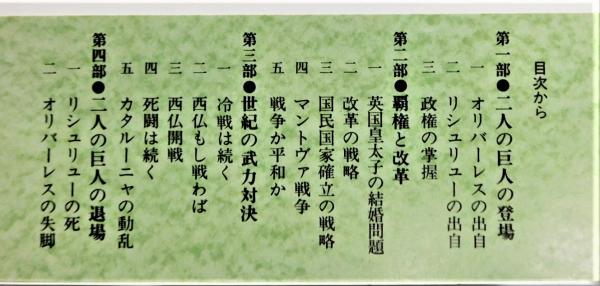 目次から
第一部●二人の巨人の登場
一 オリバーレスの出自
二 リシュリューの出自
三 政権の掌握
第二部●覇権と改革
一 英国皇太子の結婚問題
二 改革の戦略
三 国民国家確立の戦略
四 マントヴァ戦争
五 戦争か平和か
第三部●世紀の武力対決
一 冷戦は続く
二 西仏もし戦わば
三 西仏開戦
四 死闘は続く
五 カタルーニャの動乱
第四部●二人の巨人の退場
一 リシュリューの死
二 オリバーレスの失脚